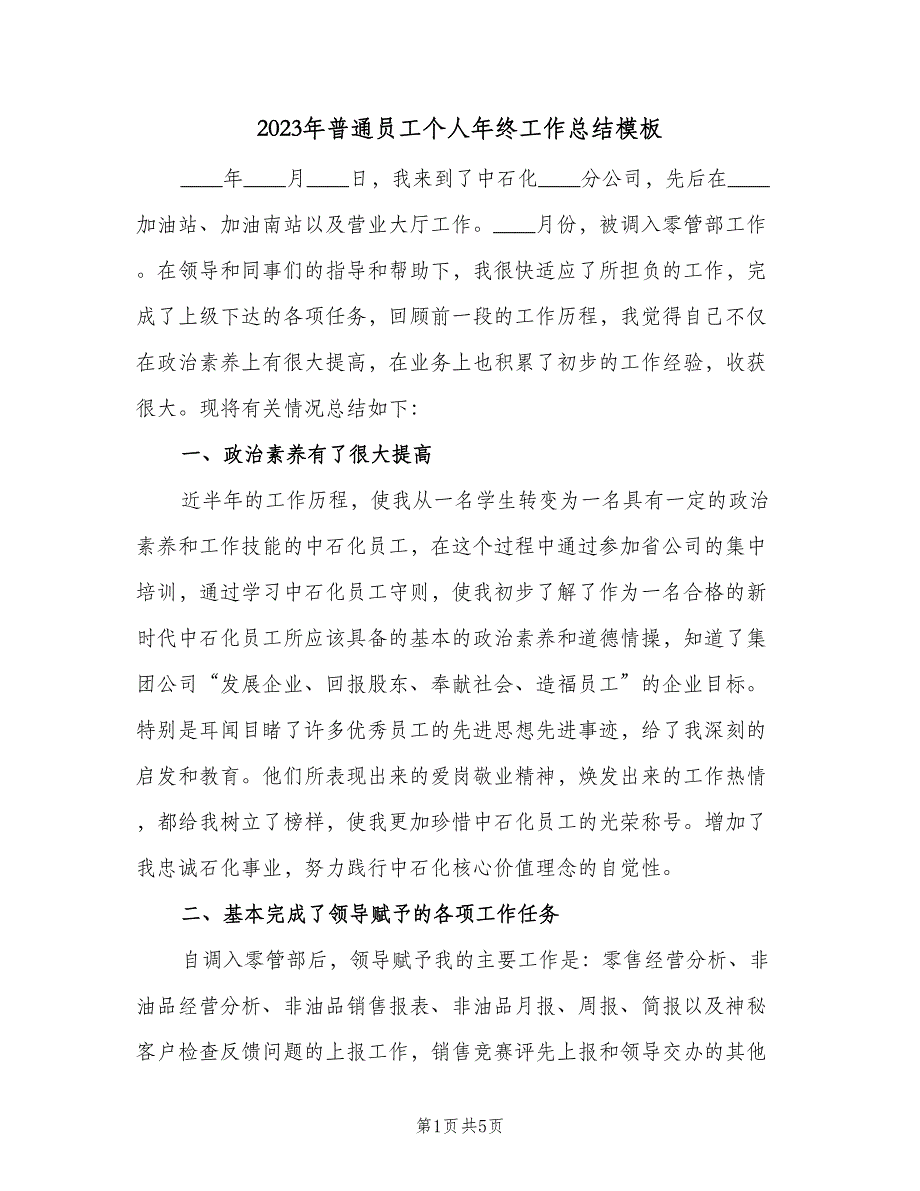 2023年普通员工个人年终工作总结模板
____年____月____日，我来到了中石化____分公司，先后在____
加油站、加油南站以及营业大厅工作。____月份，被调入零管部工作
。在领导和同事们的指导和帮助下，我很快适应了所担负的工作，完
成了上级下达的各项任务，回顾前一段的工作历程，我觉得自己不仅
在政治素养上有很大提高，在业务上也积累了初步的工作经验，收获
很大。现将有关情况总结如下：
一、政治素养有了很大提高
近半年的工作历程，使我从一名学生转变为一名具有一定的政治
素养和工作技能的中石化员工，在这个过程中通过参加省公司的集中
培训，通过学习中石化员工守则，使我初步了解了作为一名合格的新
时代中石化员工所应该具备的基本的政治素养和道德情操，知道了集
团公司“发展企业、回报股东、奉献社会、造福员工”的企业目标。
特别是耳闻目睹了许多优秀员工的先进思想先进事迹，给了我深刻的
启发和教育。他们所表现出来的爱岗敬业精神，焕发出来的工作热情
，都给我树立了榜样，使我更加珍惜中石化员工的光荣称号。增加了
我忠诚石化事业，努力践行中石化核心价值理念的自觉性。
二、基本完成了领导赋予的各项工作任务
自调入零管部后，领导赋予我的主要工作是：零售经营分析、非
油品经营分析、非油品销售报表、非油品月报、周报、简报以及神秘
客户检查反馈问题的上报工作，销售竞赛评先上报和领导交办的其他
第1页 共5页